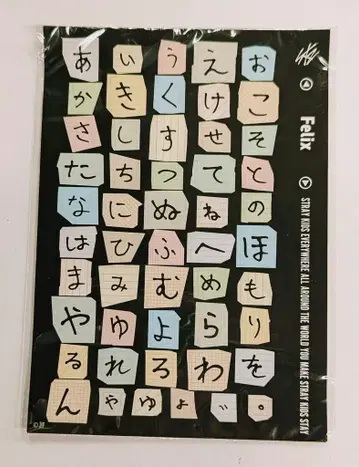 あいうえお
かきくけこ
さしすせそ
たちつてと
なにぬねの
はひふへほ
まみむめも
やゆよらり
るれろわを
んゃゅょ゛゜
SKZ
Felix
STRAY KIDS EVERYWHERE ALL AROUND THE WORLD YOU MAKE STRAY KIDS STAY